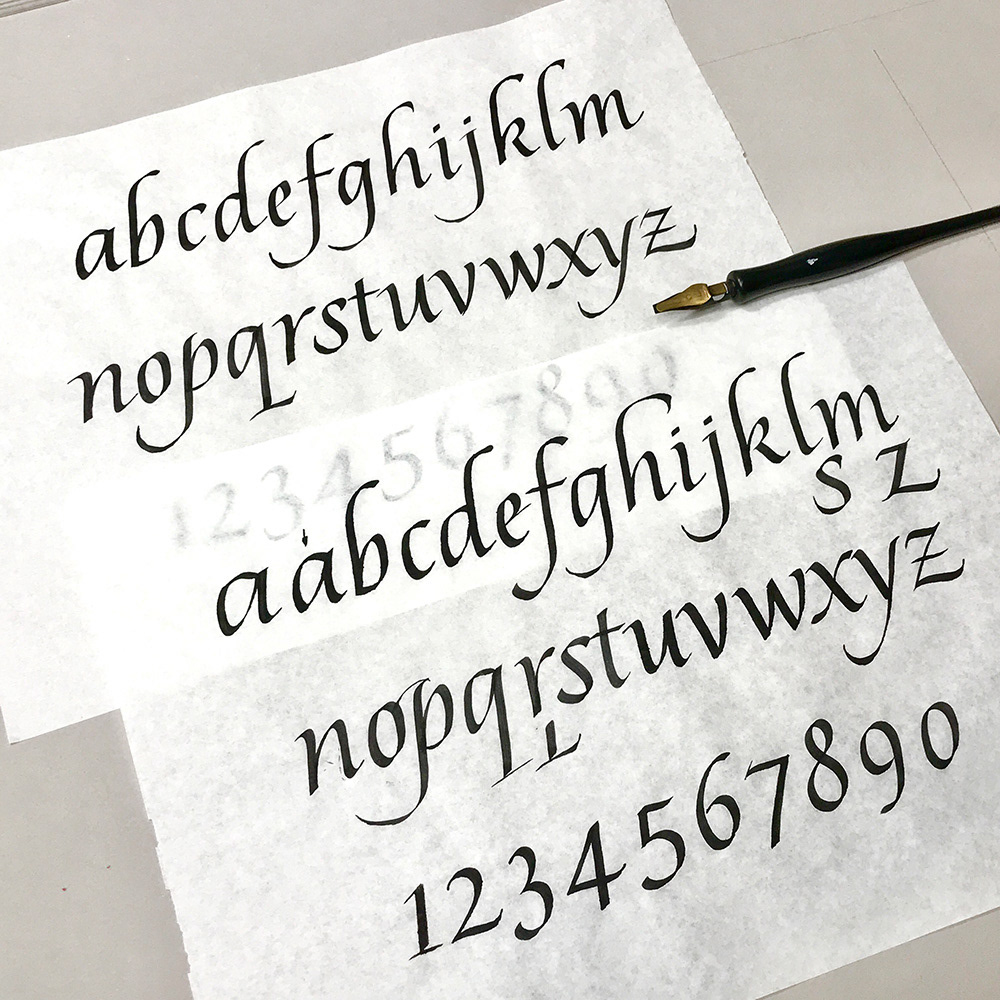 abcdefghijklm
nopqrstuvwxyz
1234567890
aabcdefghijklm
s z
nopqrstuvwxyz
1234567890